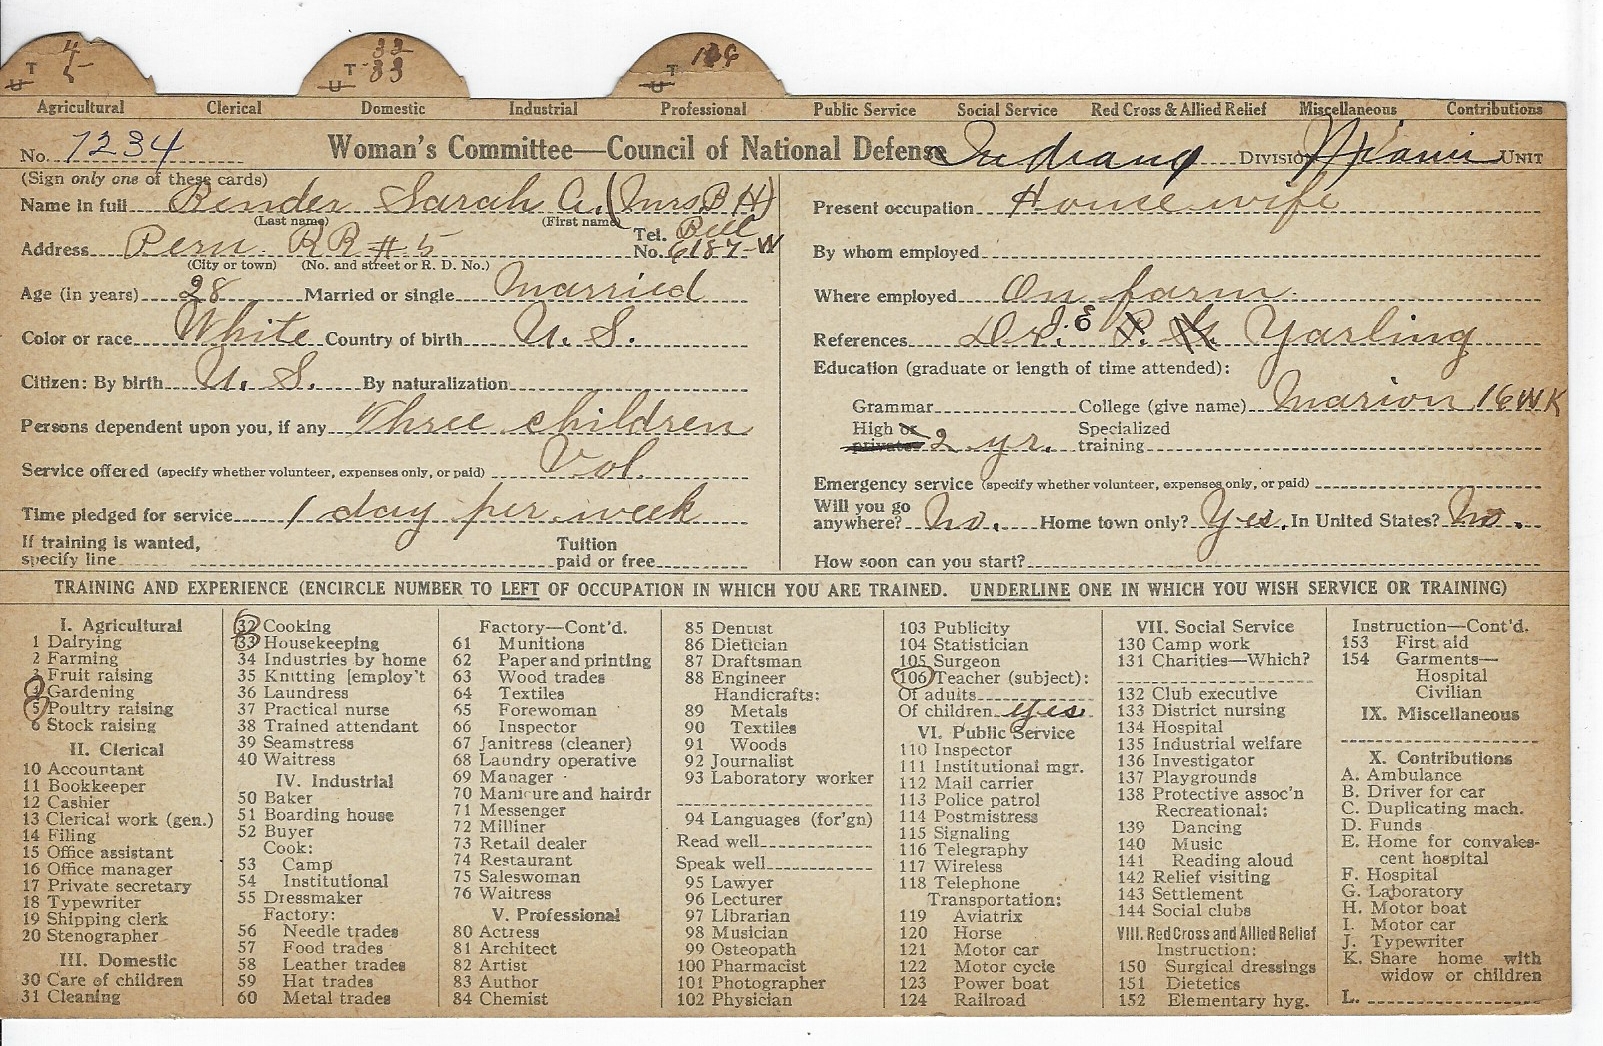 4 5 T U
32 33 T U
106 T U
Agricultural Clerical Domestic Industrial Professional Public Service Social Service Red Cross & Allied Relief Miscellaneous Contributions
No. 7234 Woman's Committee—Council of National Defense Indiana DIVISION Miami UNIT
(Sign only one of these cards)
Name in full Bender Sarah A. (Mrs. B H)
(Last name) (First name)
Address Peru RR #5 Tel. No. Bell 6187-W
(City or town) (No. and street or R. D. No.)
Age (in years) 28 Married or single Married
Color or race White Country of birth U. S.
Citizen: By birth U. S. By naturalization
Persons dependent upon you, if any Three children
Service offered (specify whether volunteer, expenses only, or paid) Vol.
Time pledged for service 1 day per week
If training is wanted, specify line Tuition paid or free
Present occupation House wife
By whom employed
Where employed On farm
References Dr. E Yarling
Education (graduate or length of time attended):
Grammar College (give name) Marion 16 WK
High or private 2 yr. Specialized training
Emergency service (specify whether volunteer, expenses only, or paid)
Will you go anywhere? No. Home town only? Yes. In United States? No.
How soon can you start?
TRAINING AND EXPERIENCE (ENCIRCLE NUMBER TO LEFT OF OCCUPATION IN WHICH YOU ARE TRAINED. UNDERLINE ONE IN WHICH YOU WISH SERVICE OR TRAINING)
I. Agricultural
1 Dairying
2 Farming
3 Fruit raising
4 Gardening
5 Poultry raising
6 Stock raising
II. Clerical
10 Accountant
11 Bookkeeper
12 Cashier
13 Clerical work (gen.)
14 Filing
15 Office assistant
16 Office manager
17 Private secretary
18 Typewriter
19 Shipping clerk
20 Stenographer
III. Domestic
30 Care of children
31 Cleaning
32 Cooking
33 Housekeeping
34 Industries by home
35 Knitting [employ't
36 Laundress
37 Practical nurse
38 Trained attendant
39 Seamstress
40 Waitress
IV. Industrial
50 Baker
51 Boarding house
52 Buyer
Cook:
53 Camp
54 Institutional
55 Dressmaker
Factory:
56 Needle trades
57 Food trades
58 Leather trades
59 Hat trades
60 Metal trades
Factory—Cont'd.
61 Munitions
62 Paper and printing
63 Wood trades
64 Textiles
65 Forewoman
66 Inspector
67 Janitress (cleaner)
68 Laundry operative
69 Manager
70 Manicure and hairdr
71 Messenger
72 Milliner
73 Retail dealer
74 Restaurant
75 Saleswoman
76 Waitress
V. Professional
80 Actress
81 Architect
82 Artist
83 Author
84 Chemist
85 Dentist
86 Dietician
87 Draftsman
88 Engineer
Handicrafts:
89 Metals
90 Textiles
91 Woods
92 Journalist
93 Laboratory worker
94 Languages (for'gn)
Read well
Speak well
95 Lawyer
96 Lecturer
97 Librarian
98 Musician
99 Osteopath
100 Pharmacist
101 Photographer
102 Physician
103 Publicity
104 Statistician
105 Surgeon
106 Teacher (subject):
Of adults
Of children yes
VI. Public Service
110 Inspector
111 Institutional mgr.
112 Mail carrier
113 Police patrol
114 Postmistress
115 Signaling
116 Telegraphy
117 Wireless
118 Telephone
Transportation:
119 Aviatrix
120 Horse
121 Motor car
122 Motor cycle
123 Power boat
124 Railroad
VII. Social Service
130 Camp work
131 Charities—Which?
132 Club executive
133 District nursing
134 Hospital
135 Industrial welfare
136 Investigator
137 Playgrounds
138 Protective assoc'n
Recreational:
139 Dancing
140 Music
141 Reading aloud
142 Relief visiting
143 Settlement
144 Social clubs
VIII. Red Cross and Allied Relief
Instruction:
150 Surgical dressings
151 Dietetics
152 Elementary hyg.
Instruction—Cont'd.
153 First aid
154 Garments—
Hospital
Civilian
IX. Miscellaneous
X. Contributions
A. Ambulance
B. Driver for car
C. Duplicating mach.
D. Funds
E. Home for convales-
cent hospital
F. Hospital
G. Laboratory
H. Motor boat
I. Motor car
J. Typewriter
K. Share home with
widow or children
L.